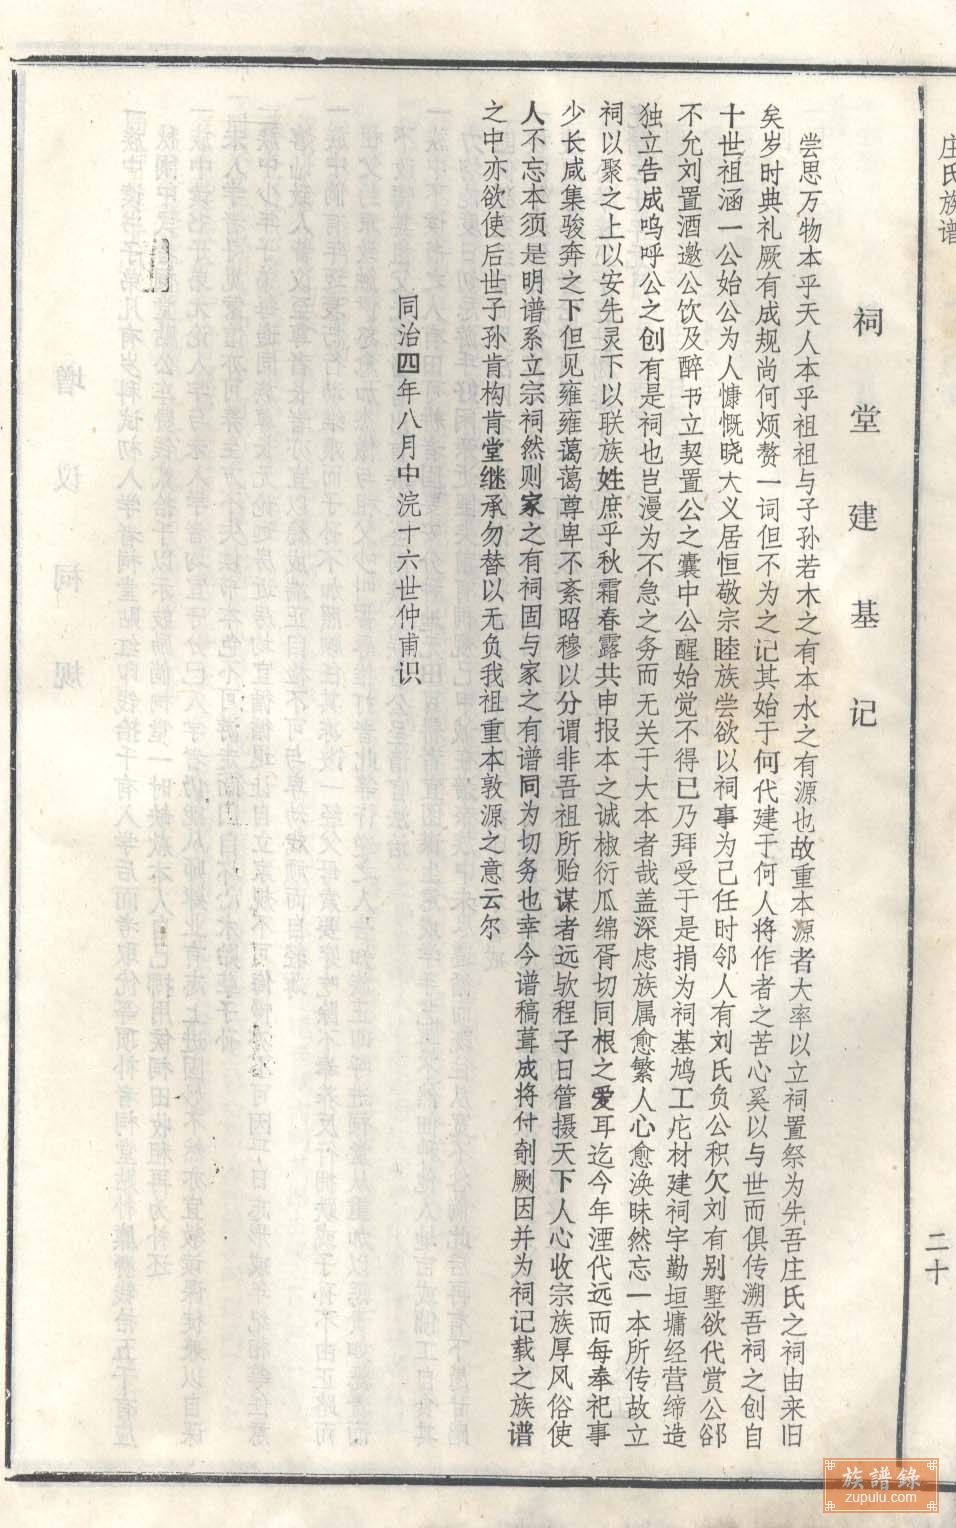 庄氏族谱
二十
祠堂建基记
尝思万物本乎天人本乎祖祖与子孙若木之有本水之有源也故重本源者大率以立祠置祭为先吾庄氏之祠由来旧
矣岁时典礼厥有成规尚何烦赘一词但不为之记其始于何代建于何人将作者之苦心奚以与世而俱传溯吾祠之创自
十世祖涵一公始公为人慷慨晓大义居恒敬宗睦族尝欲以祠事为己任时邻人有刘氏负公积欠刘有别墅欲代赏公郤
不允刘置酒邀公饮及醉书立契置公之囊中公醒始觉不得已乃拜受于是捐为祠基鸠工庀材建祠宇勤垣墉经营缔造
独立告成呜呼公之创有是祠也岂漫为不急之务而无关于大本者哉盖深虑族属愈繁人心愈涣昧然忘一本所传故立
祠以聚之上以安先灵下以联族姓庶乎秋霜春露共申报本之诚椒衍瓜绵胥切同根之爱耳迄今年湮代远而每奉祀事
少长咸集骏奔之下但见雍雍蔼蔼尊卑不紊昭穆以分谓非吾祖所贻谋者远欤程子曰管摄天下人心收宗族厚风俗使
人不忘本须是明谱系立宗祠然则家之有祠固与家之有谱同为切务也幸今谱稿葺成将付剞劂因并为祠记载之族谱
之中亦欲使后世子孙肯构肯堂继承勿替以无负我祖重本敦源之意云尔
同治四年八月中浣十六世仲甫识
族譜錄
zupulu.com